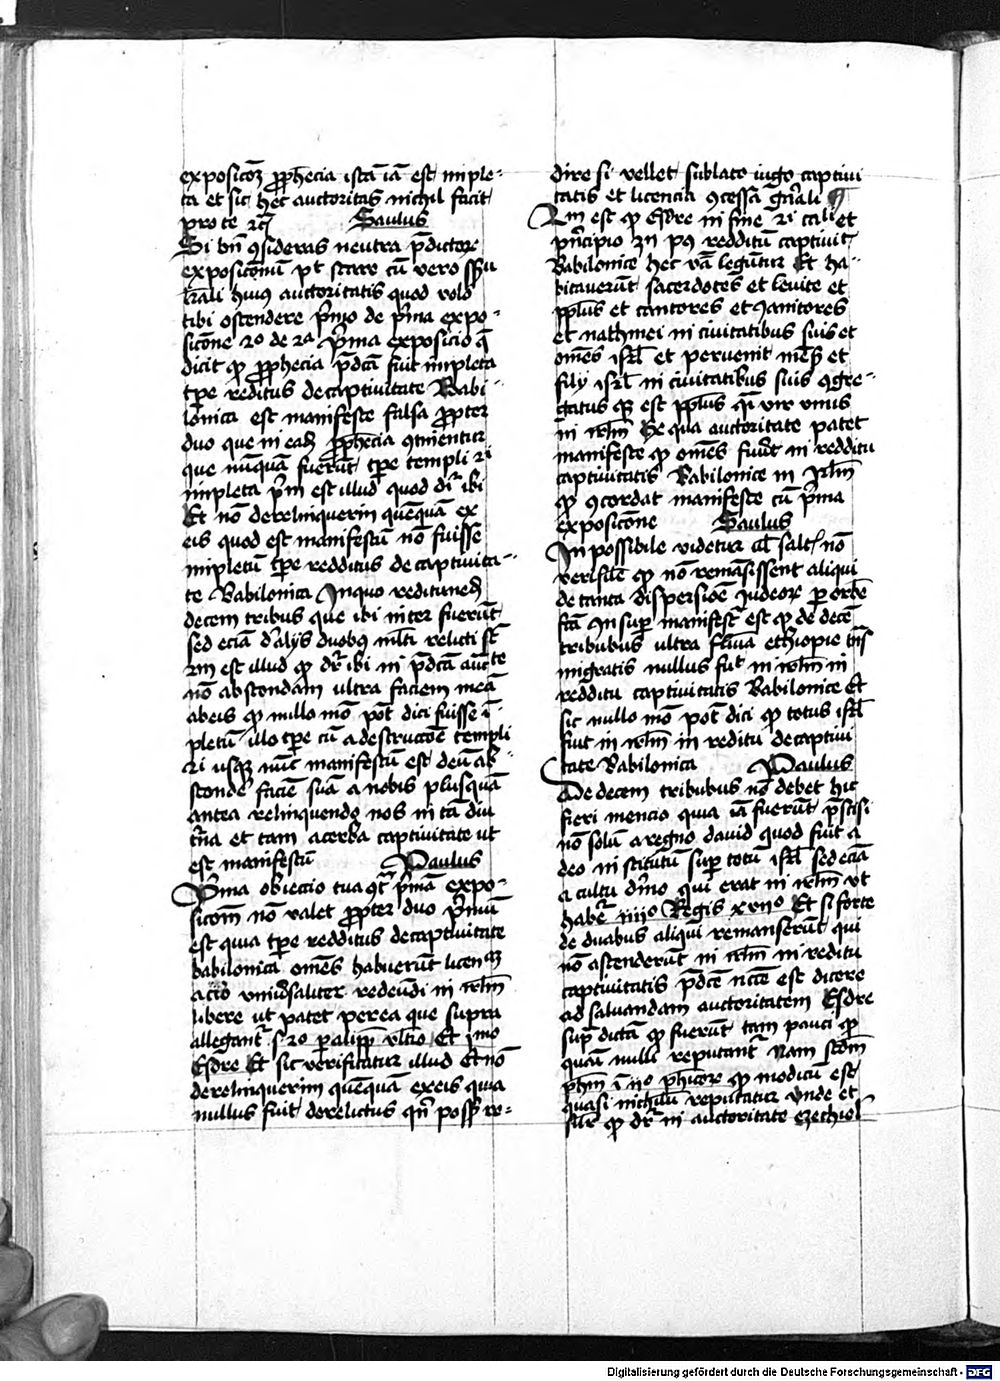 exposicōꝫ ꝓph̄ecia istā iā est imple⸗
ta et sic hec auctoritas nichil facit
pro te ꝛc̄
Saulus
Si bn̄ ꝯsideras neutra p̄dictoꝝ
exposicionū pt̄ stare cū vero
lr̄ali huiꝰ auctoritatis quod volo
tibi ostendere p̄mo de p̄ma expo⸗
sicōne 2o de 2a p̄ma exposicio q̄
dicit ꝙ ꝓph̄ecia p̄dcā fuit impleta
tp̄e reditus de captiuitate Babi⸗
lonica est manifeste falsa ꝓpter
duo que in eadē ꝓph̄ecia ꝯtinentur
que nūquā fuerūt tp̄e templi 2i
impleta p̄m est illud quod dr̄ ibi
Et nō derelinquerim quēquā ex
eis quod est manifestū nō fuisse
impletū tp̄e redditus de captiuita⸗
te Babilonica In quo
decem tribus que ibi inter fuerūt
sed eciā d̄ alijs duobꝰ ml̄ti relicti st̄
2m est illud ꝙ dr̄ ibi in p̄dcā auc̄te
nō abscondam ultra faciem meā
ab eis ꝙ nullo mō pōt dici fuisse ī⸗
pletū illo tp̄e cū a destructōe templi
2i usqꝫ nūc manifestū est deū ab⸗
scond̄e faciē suā a nobis plusquā
antea relinquendo nos in tā diu
tn̄a et tam acerba captiuitate ut
est manifestū
Paulus
Prima obieccio tua ꝯtͣ p̄mā expo⸗
sicōm nō valet ꝓpter duo p̄mū
est quia tp̄e redditus de captiuitate
babilonica omēs habuerūt licen
vniūsaliter redeūdi in irl̄m
libere ut patet per ea que supra
allegant̄ᷣ s 2o paralipp̄ vltio Et jmo
Esdre Et sic verificatur illud Et nō
derelinquerim quēquā ex eis quia
nullus fuit derelictus qn̄ poss̄ re⸗
dire si vellet sublato iugo captiui
tatis et licencia ꝯcessa gn̄ali
2m est ꝙ Esdre in fine 2i cali et
p̄ncipio 3ii pꝰ redditū captiuit̄
Babilonice hec vā leguntur Et ha⸗
bitauerūt sacerdotes et leuite et
ppl̄us et cantores et Janitores
et nathinei in ciuitatibus suis et
omēs isrl̄ et peruenit mēs̄ et
filij isrl̄ in ciuitatibus suis ꝯgre⸗
gatus qꝫ est ppl̄us q̄i vir vnus
in irl̄m Ex qua auctoritate patet
manifeste ꝙ omēs fuer̄t in redditu
captiuitatis Babilonice in Jrl̄m
ꝙ ꝯcordat manifeste cū p̄ma
exposicōne
Saulus
Inpossibile videtur vl̄ salt̄ nō
verisile ꝙ nō remāsissent aliqui
de tanta dispersioē Judeoꝝ per orbē
fcā Insuper manifestū est ꝙ de decē
tribubus ultra flīua ethiopie tn̄s
migratis nullus fuit in irl̄m in
redditu captiuitatis Babilonice Et
sic nullo mō pōt dici ꝙ totus isrl̄
fuit in irl̄m in reditu de captiui
tate Babilonica
Paulus
De decem tribubus nō debet hic
fieri mencio quia iā fuerūt p̄scisi
nō solū a regno dauid quod fuit a
deo institutū sup̄ totū isrl̄ sed eciā
a cultu diō qui erat in irl̄m vt
habet̄ᷣ iiiio Regis xviio Et si forte
de duabus aliqui remanserūt qui
nō ascenderūt in irl̄m in reditu
captiuitatis p̄dcē nccē est dicere
ad saluandam auctoritatem Esdre
sup̄ dictā ꝙ fuerūt tam pauci ꝙ
quasi nulli reputant̄ᷣ Nam scd̄m
ph̄m ī iio ph̄icoꝝ ꝙ modicū est
quasi nichilū reputatur vnde et
sup̄ ꝙ dr̄ in auctoritate ezechiel
Digitalisierung gefördert durch die Deutsche Forschungsgemeinschaft - DFG